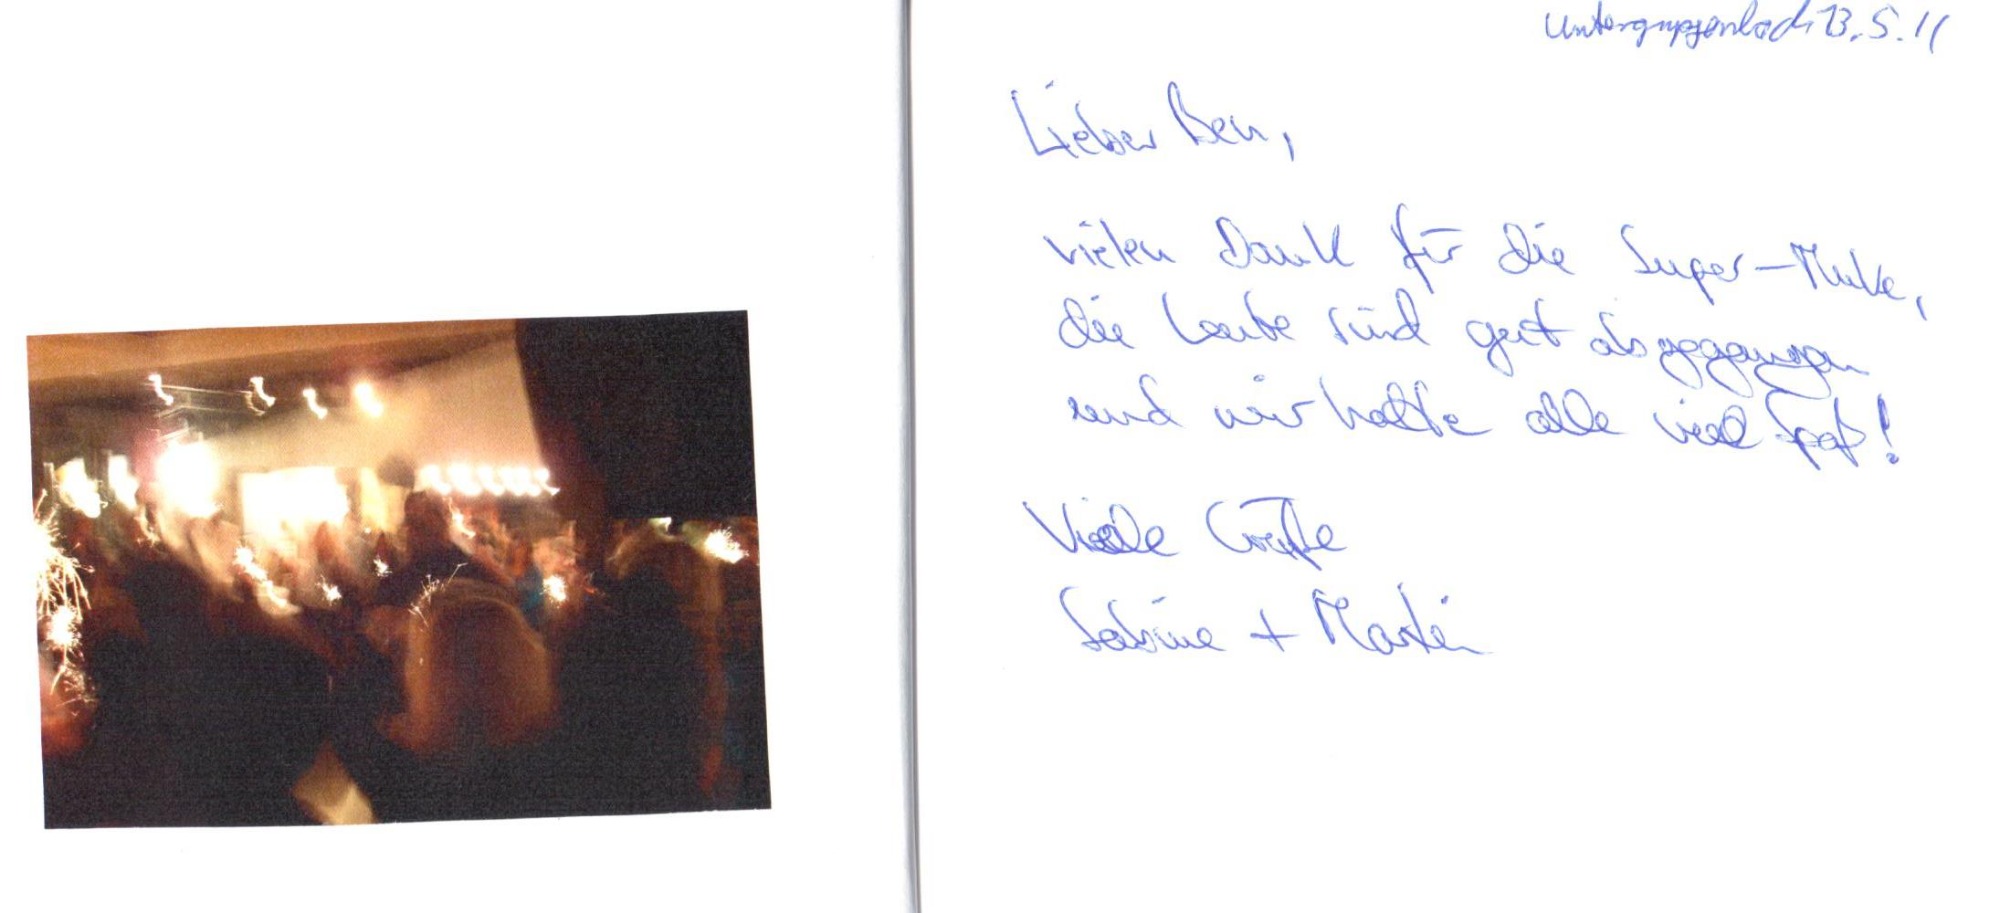 Untergruppenbach 13.5.11
Lieber Ben,
vielen Dank für die Super-Muke,
die Leute sind gut abgegangen
und wir hatte alle viel Spaß!
Viele Grüße
Sabine + Martin